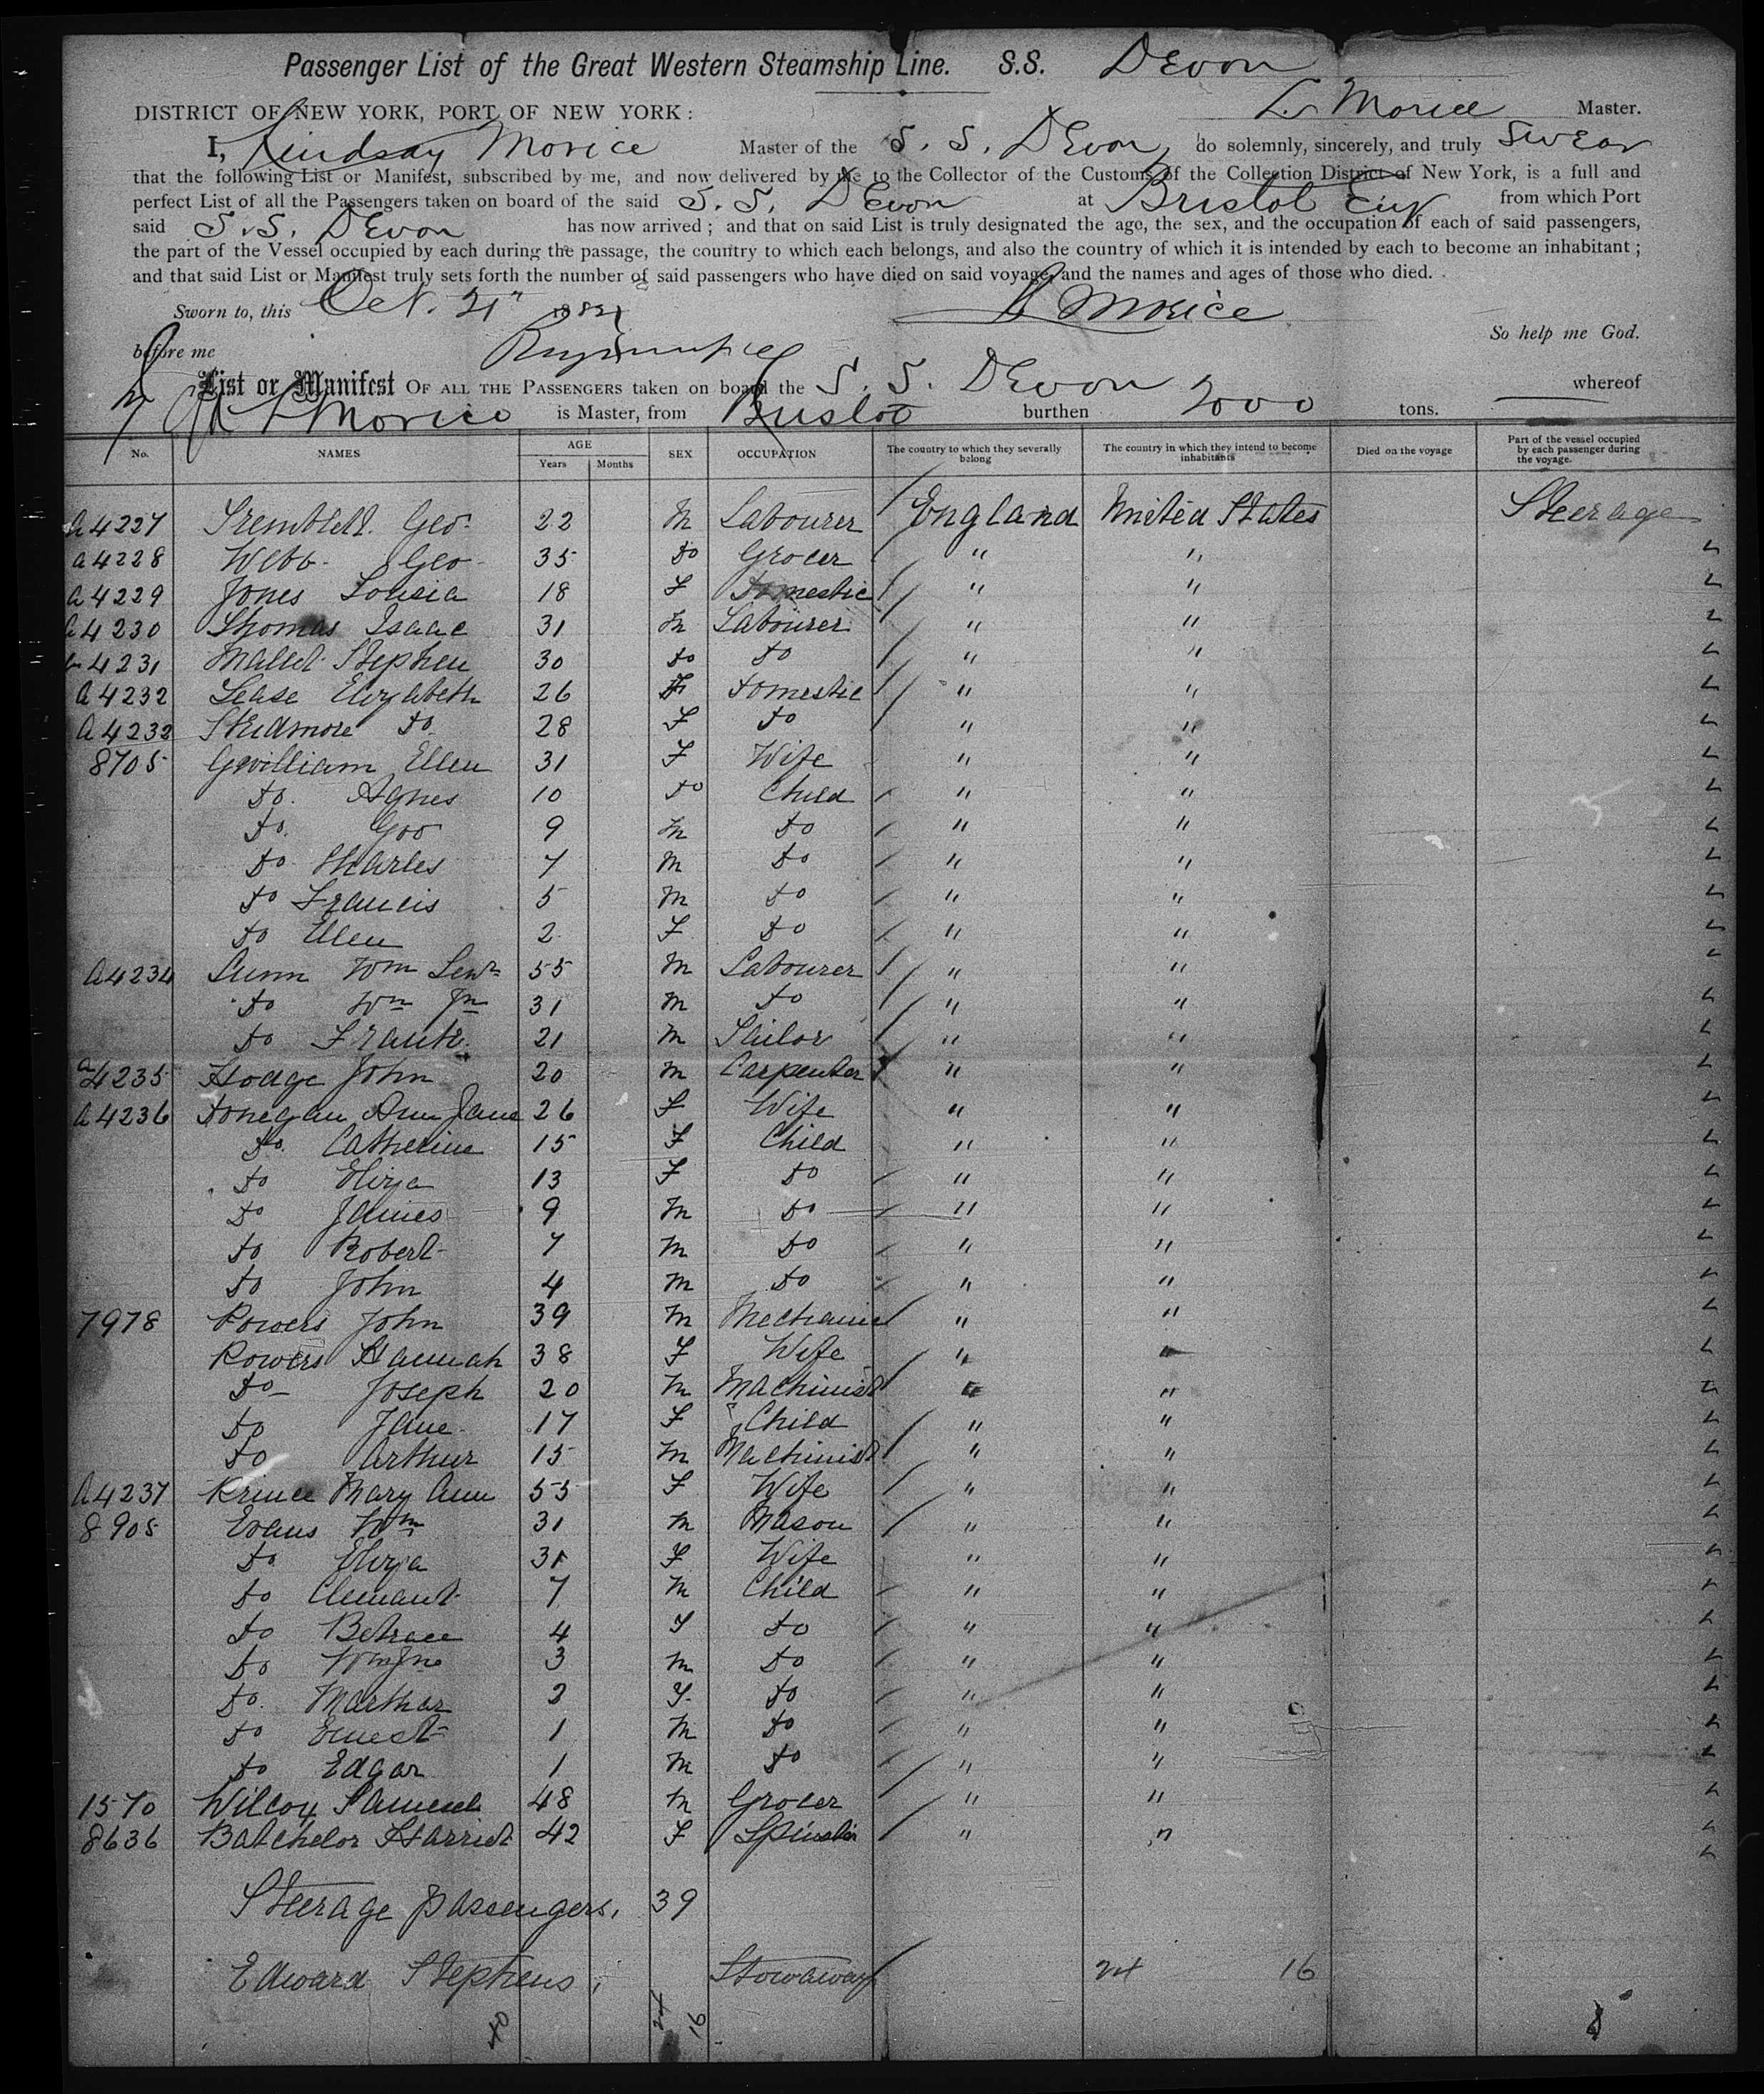 Passenger List of the Great Western Steamship Line. S.S. Devon
DISTRICT OF NEW YORK, PORT OF NEW YORK: L. Morice Master.
I, Lindsay Morice Master of the S. S. Devon do solemnly, sincerely, and truly swear
that the following List or Manifest, subscribed by me, and now delivered by me to the Collector of the Customs of the Collection District of New York, is a full and
perfect List of all the Passengers taken on board of the said S. S. Devon at Bristol Eng from which Port
said S. S. Devon has now arrived; and that on said List is truly designated the age, the sex, and the occupation of each of said passengers,
the part of the Vessel occupied by each during the passage, the country to which each belongs, and also the country of which it is intended by each to become an inhabitant;
and that said List or Manifest truly sets forth the number of said passengers who have died on said voyage, and the names and ages of those who died.
Sworn to, this Oct. 21" 188 L Morice
So help me God.
before me
List or Manifest OF ALL THE PASSENGERS taken on board the S. S. Devon whereof
L Morice is Master, from Bristol burthen 2000 tons.
No. NAMES AGE Years Months SEX OCCUPATION The country to which they severally belong The country in which they intend to become inhabitants Died on the voyage Part of the vessel occupied by each passenger during the voyage.
A4227 Tremblett Geo. 22 M Labourer England United States Steerage
A4228 Webb Geo 35 Do Grocer " "
A4229 Jones Louisia 18 F Domestic " "
A4230 Thomas Isaac 31 M Labourer " "
A4231 Mallet Stephen 30 Do Do " "
A4232 Lease Elizabeth 26 F Domestic " "
A4232 Skidmore Do 28 F Do " "
8705 Gwilliam Ellen 31 F Wife " "
Do. Agnes 10 Do Child " "
Do. Geo 9 M Do " "
Do Charles 7 M Do " "
Do Francis 5 M Do " "
Do Ellen 2 F Do " "
A4234 Lunn Wm Senr 55 M Labourer " "
Do Wm Jn 31 M Do " "
Do Frank 21 M Sailor " "
A4235 Hodge John 20 M Carpenter " "
A4236 Donegan Ann Jane 26 F Wife " "
Do. Catherine 15 F Child " "
Do Eliza 13 F Do " "
Do James 9 M Do " "
Do Robert 7 M Do " "
Do John 4 M Do " "
7978 Powers John 39 M Mechanic " "
Powers Hannah 38 F Wife " "
Do Joseph 20 M Machinist " "
Do Jane 17 F Child " "
Do Arthur 15 M Machinist " "
A4237 Prince Mary Ann 55 F Wife " "
8905 Evans Wm 31 M Mason " "
Do Eliza 31 F Wife " "
Do Clemant 7 M Child " "
Do Betrace 4 F Do " "
Do Wm Jno 3 M Do " "
Do. Marthar 2 F Do " "
Do Ernest 1 M Do " "
Do Edgar 1 M Do " "
1570 Wilcox Samuel 48 M Grocer " "
8636 Batchelor Harriet 42 F Spinster " "
Steerage passengers, 39
Edward Stephens, Stowaway 24 16
24 16